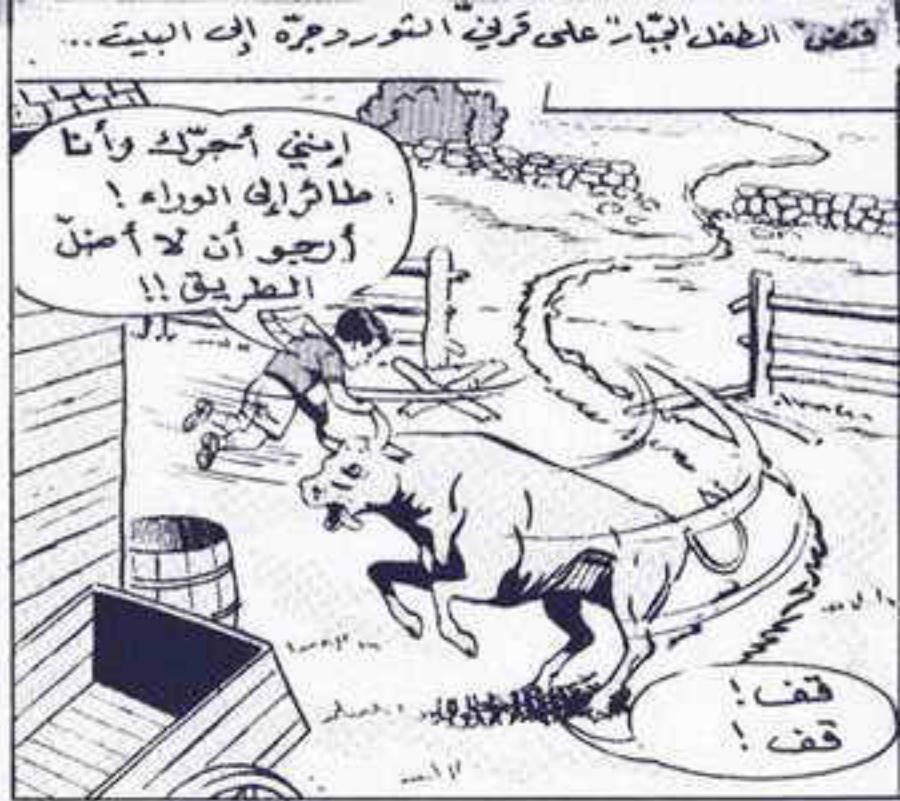 قبض "الطفل الجبّار" على قرنيّ الثور وجرّه إلى البيت..
إنني أجرّك وأنا
طائر إلى الوراء !
أرجو أن لا أضلّ
الطريق !!
قف !
قف !